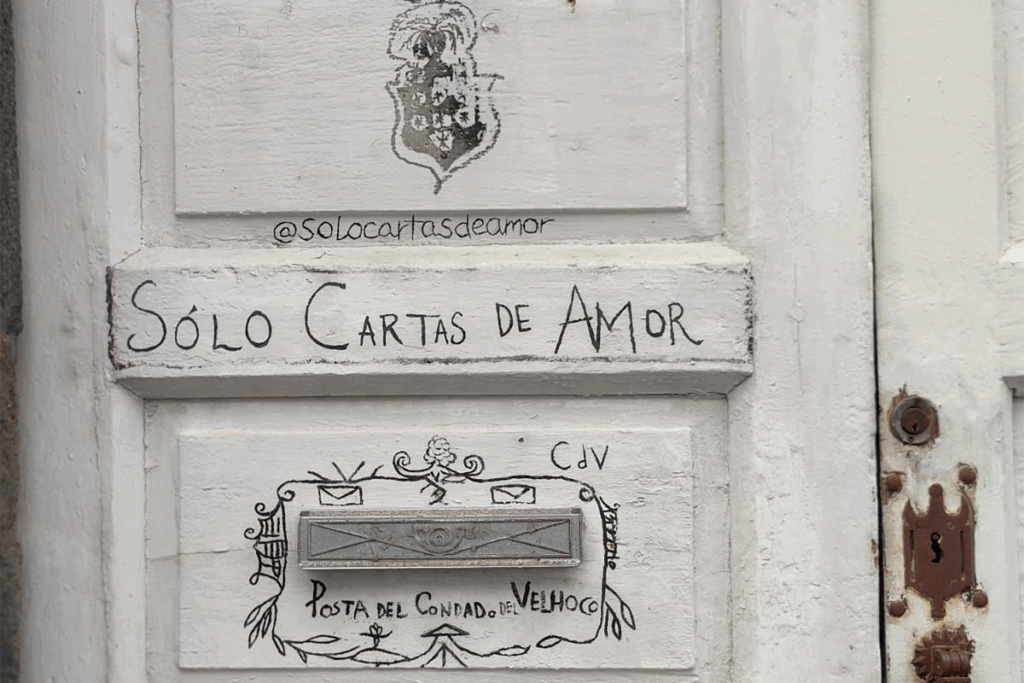 @solocartasdeamor
SÓLO CARTAS DE AMOR
CdV
POSTA DEL CONDADO DEL VELHOCO